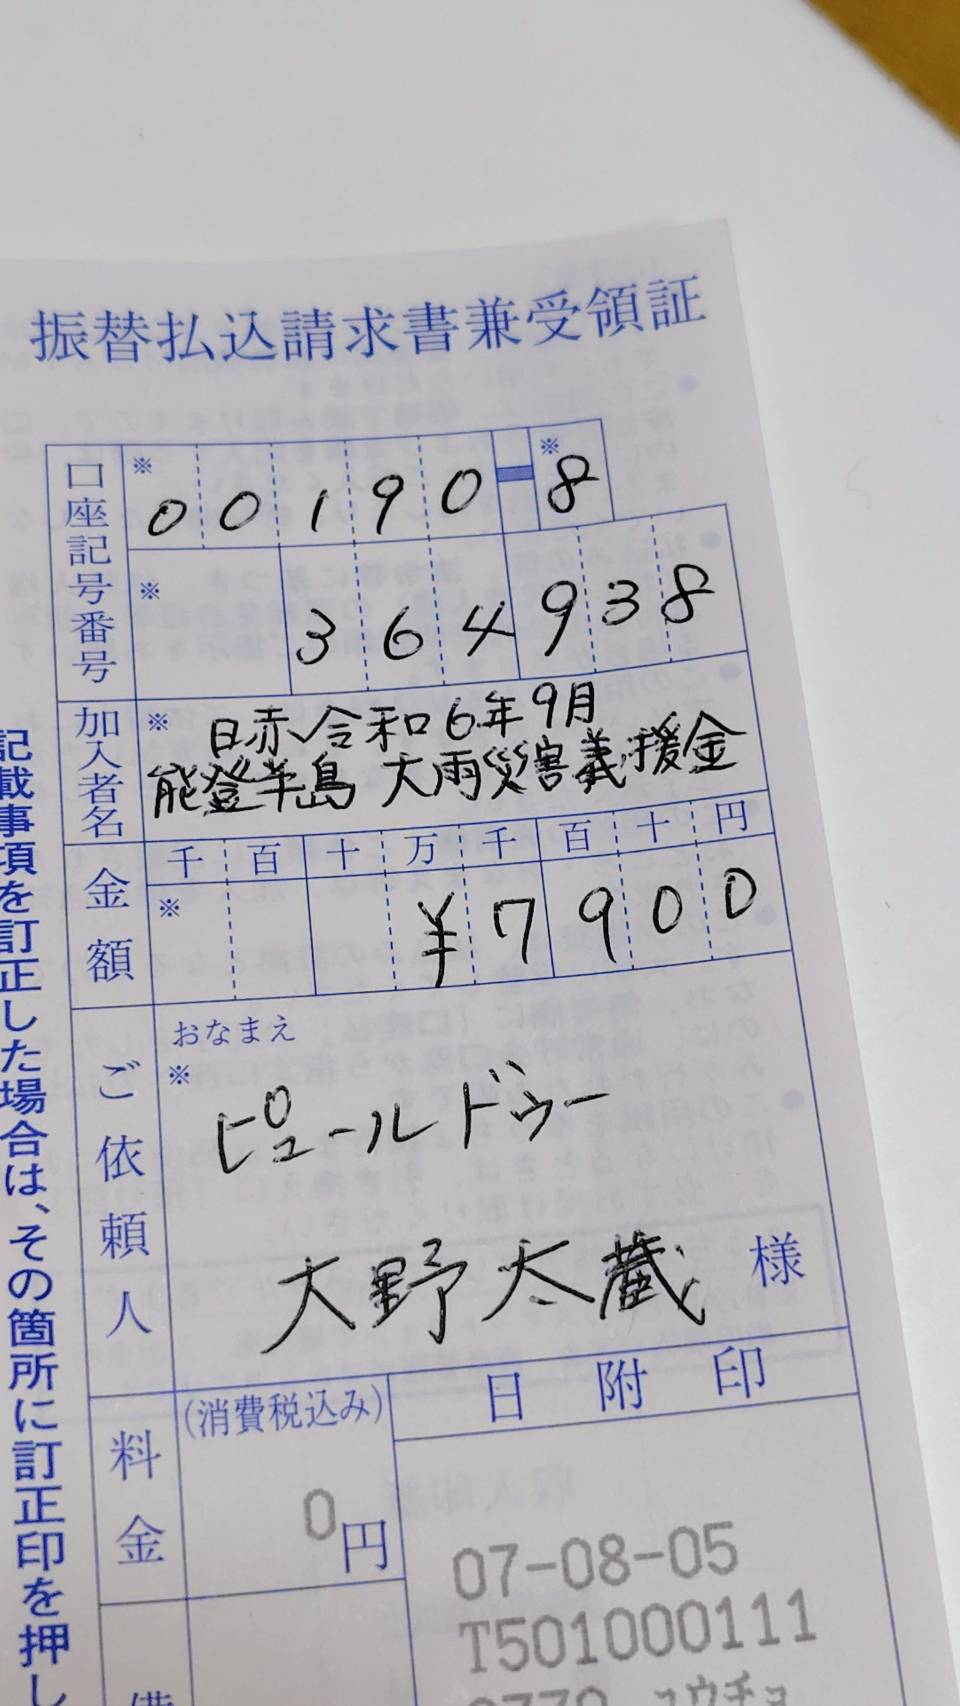 振替払込請求書兼受領証
口座記号番号
※ 00190-※8
※ 364938
加入者名
※ 日赤令和6年9月
能登半島 大雨災害義援金
金額
千百十万千百十円
※ ¥7900
ご依頼人
おなまえ
※
ピュールドゥー
大野太蔵 様
料金
(消費税込み)
0円
日附印
07-08-05
T501000111
記載事項を訂正した場合は、その箇所に訂正印を押し